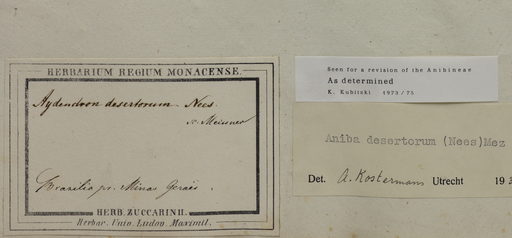 HERBARIUM REGIUM MONACENSE.
Aydendron desertorum Nees.
v. Meissner
Brasilia pr. Minas Geraës.
HERB. ZUCCARINII.
Herbar. Univ. Ludov. Maximil.
Seen for a revision of the Anibineae
As determined
K. Kubitzki 1973/75
Aniba desertorum (Nees)Mez
Det. A. Kostermans Utrecht 193